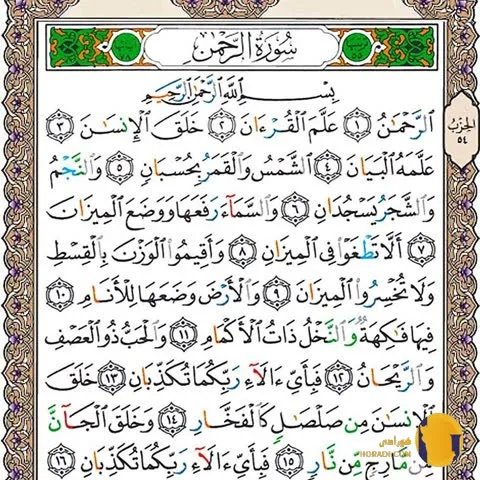 سُورَةُ الرَّحْمٰن
بِسْمِ اللَّهِ الرَّحْمٰنِ الرَّحِيمِ
الرَّحْمٰنُ ١ عَلَّمَ الْقُرْءَانَ ٢ خَلَقَ الْإِنسَٰنَ ٣
عَلَّمَهُ الْبَيَانَ ٤ الشَّمْسُ وَالْقَمَرُ بِحُسْبَانٍ ٥ وَالنَّجْمُ
وَالشَّجَرُ يَسْجُدَانِ ٦ وَالسَّمَآءَ رَفَعَهَا وَوَضَعَ الْمِيزَانَ
٧ أَلَّا تَطْغَوْا فِي الْمِيزَانِ ٨ وَأَقِيمُوا الْوَزْنَ بِالْقِسْطِ
وَلَا تُخْسِرُوا الْمِيزَانَ ٩ وَالْأَرْضَ وَضَعَهَا لِلْأَنَامِ ١٠
فِيهَا فَٰكِهَةٌ وَالنَّخْلُ ذَاتُ الْأَكْمَامِ ١١ وَالْحَبُّ ذُو الْعَصْفِ
وَالرَّيْحَانُ ١٢ فَبِأَيِّ ءَالَآءِ رَبِّكُمَا تُكَذِّبَانِ ١٣ خَلَقَ
الْإِنسَٰنَ مِن صَلْصَٰلٍ كَالْفَخَّارِ ١٤ وَخَلَقَ الْجَآنَّ
مِن مَّارِجٍ مِّن نَّارٍ ١٥ فَبِأَيِّ ءَالَآءِ رَبِّكُمَا تُكَذِّبَانِ ١٦
الحِزْبُ
٥٤
HORADI.COM